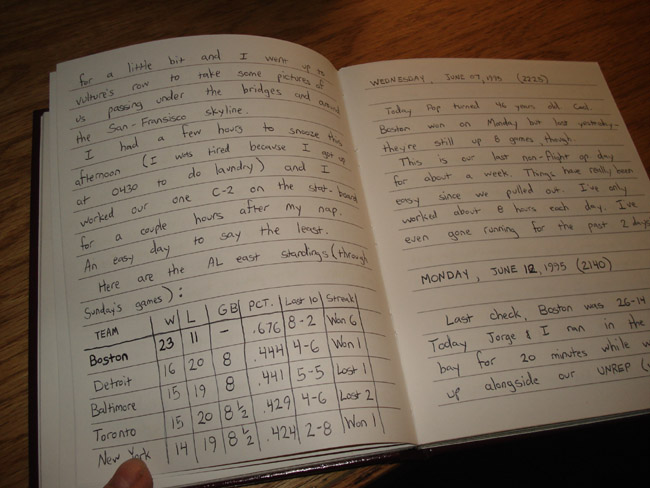 for a little bit and I went up to
vulture's row to take some pictures of
us passing under the bridges and around
the San-Fransisco skyline.
I had a few hours to snooze this
afternoon (I was tired because I got up
at 0430 to do laundry) and I
worked our one C-2 on the stat-board
for a couple hours after my nap.
An easy day to say the least.
Here are the AL east standings (through
Sunday's games):
TEAM W L GB PCT. Last 10 Streak
Boston 23 11 — .676 8-2 Won 6
Detroit 16 20 8 .444 4-6 Won 1
Baltimore 15 19 8 .441 5-5 Lost 1
Toronto 15 20 8 1/2 .429 4-6 Lost 2
New York 14 19 8 1/2 .424 2-8 Won 1
WEDNESDAY, JUNE 07, 1995 (2225)
Today Pop turned 46 years old. Cool.
Boston won on Monday but lost yesterday-
they're still up 8 games, though.
This is our last non-flight op day
for about a week. Things have really been
easy since we pulled out. I've only
worked about 8 hours each day. I've
even gone running for the past 2 days
MONDAY, JUNE 12, 1995 (2140)
Last check, Boston was 26-14
Today Jorge & I ran in the
bay for 20 minutes while
up alongside our UNREP